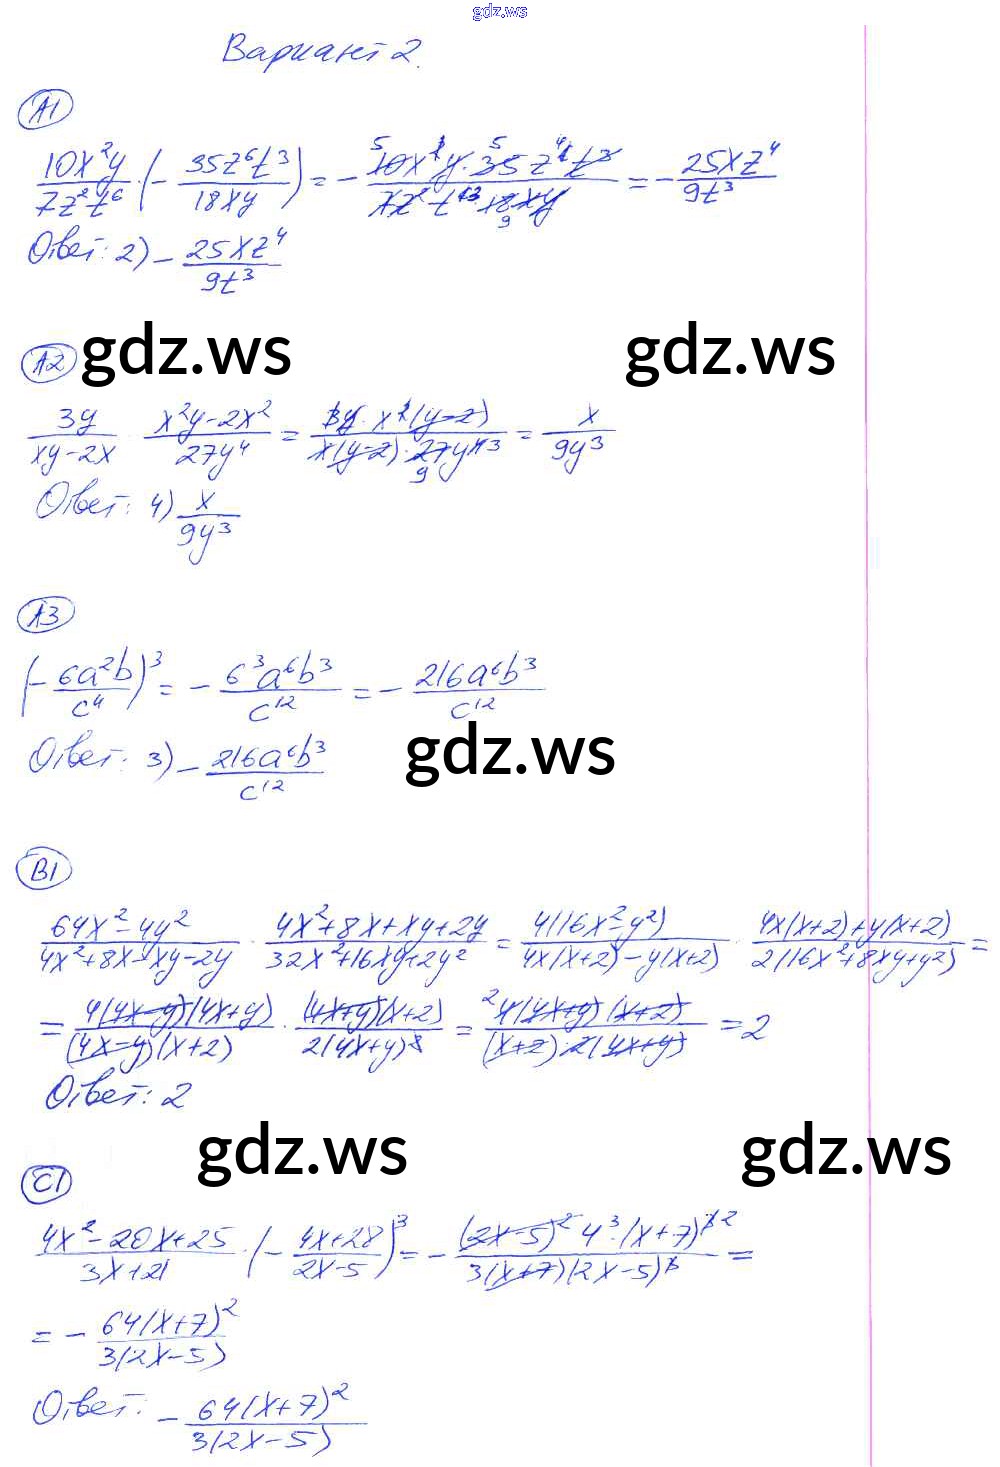 gdz.ws
Вариант 2.
А1
10x²y/7z²t⁶ · (− 35z⁶t³/18xy) = − 10x²y · 35z⁶t³/7z²t⁶ · 18xy = − 25xz⁴/9t³
Ответ: 2) − 25xz⁴/9t³
А2 gdz.ws gdz.ws
3y/xy−2x · x²y−2x²/27y⁴ = 3y · x²(y−2)/x(y−2) · 27y⁴ = x/9y³
Ответ: 4) x/9y³
А3
(− 6a²b/c⁴)³ = − 6³a⁶b³/c¹² = − 216a⁶b³/c¹²
Ответ: 3) − 216a⁶b³/c¹²
gdz.ws
В1
64x²−4y²/4x²+8x−xy−2y · 4x²+8x+xy+2y/32x²+16xy+2y² = 4(16x²−y²)/4x(x+2)−y(x+2) · 4x(x+2)+y(x+2)/2(16x²+8xy+y²) =
= 4(4x−y)(4x+y)/(4x−y)(x+2) · (4x+y)(x+2)/2(4x+y)² = 4(4x+y)(x+2)/(x+2)·2(4x+y) = 2
Ответ: 2
gdz.ws gdz.ws
С1
4x²−20x+25/3x+21 · (− 4x+28/2x−5)³ = − (2x−5)² 4³·(x+7)³/3(x+7)(2x−5)³ =
= − 64(x+7)²/3(2x−5)
Ответ: − 64(x+7)²/3(2x−5)